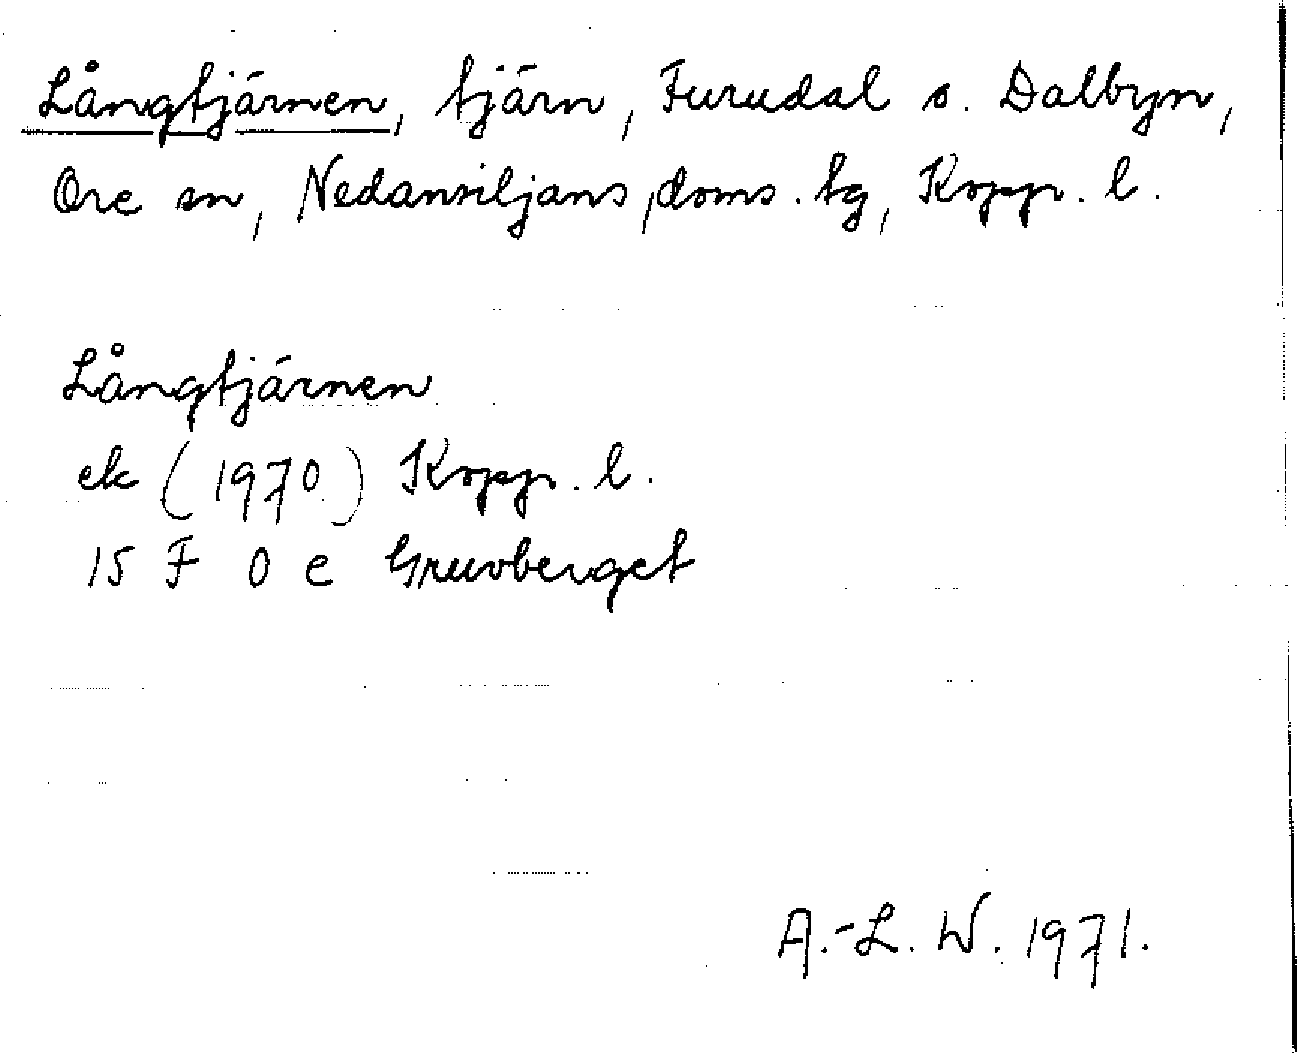 Långtjärnen, tjärn, Furudal o. Dalbyn,
Ore sn, Nedansiljans, doms. tg, Kopp. l.
Långtjärnen
ek (1970) Kopp. l.
15 F 0 e Gruvberget
A.-L. W. 1971.